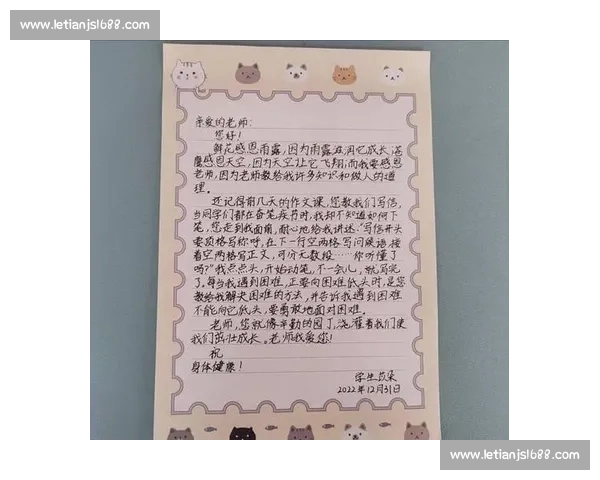 www.letianjs1688.com
亲爱的老师：
您好！
鲜花感恩雨露，因为雨露滋润它成长；苍
鹰感恩天空，因为天空让它飞翔；而我要感恩
老师，因为老师教给我许多知识和做人的道
理。
还记得前几天的作文课，您教我们写信，
当同学们都在奋笔疾书时，我却不知道如何下
笔，您走到我面前，耐心地给我讲述："写信开头
要顶格写称呼，在下一行空两格写问候语，接
着空两格写正文，可分无数段……你听懂了
吗？"我点点头，开始动笔，不一会儿，就写完
了。每当我遇到困难，正要向困难低头时，是您
教给我解决困难的方法，并告诉我遇到困难
不能向它低头，要勇敢地面对困难。
老师，您就像辛勤的园丁，浇灌着我们使
我们茁壮成长。老师我爱您！
祝
身体健康！
学生
2022年12月31日
www.letianjs1688.com